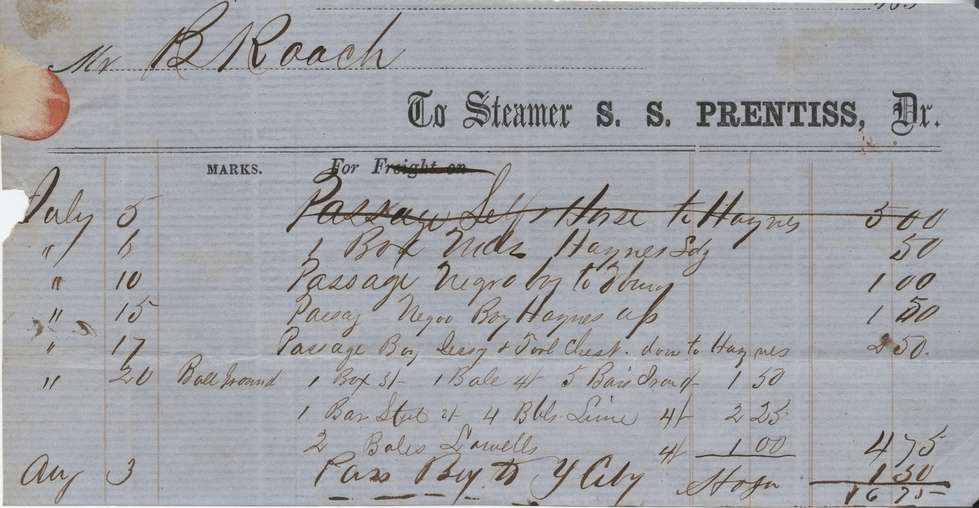 Mr B Roach
To Steamer S. S. PRENTISS, Dr.
MARKS. For Freight on
July 5 Passage Self & Horse to Haynes 5 00
" 6 1 Box Mdz Haynes Ldg 50
" 10 Passage Negro boy to 1 00
" 15 Passag Negro Boy Haynes up 1 50
" 17 Passage Boy & Tool Chest. down to Haynes 2 50.
" 20 Ball Ground 1 Box 1 Bale 5 Bars Iron 1 50
1 Bar 4 Bbls Lime 2 25
2 Bales Lowells 1 00 4 75
Aug 3 Pass Boy to Y City 1 50
16 75